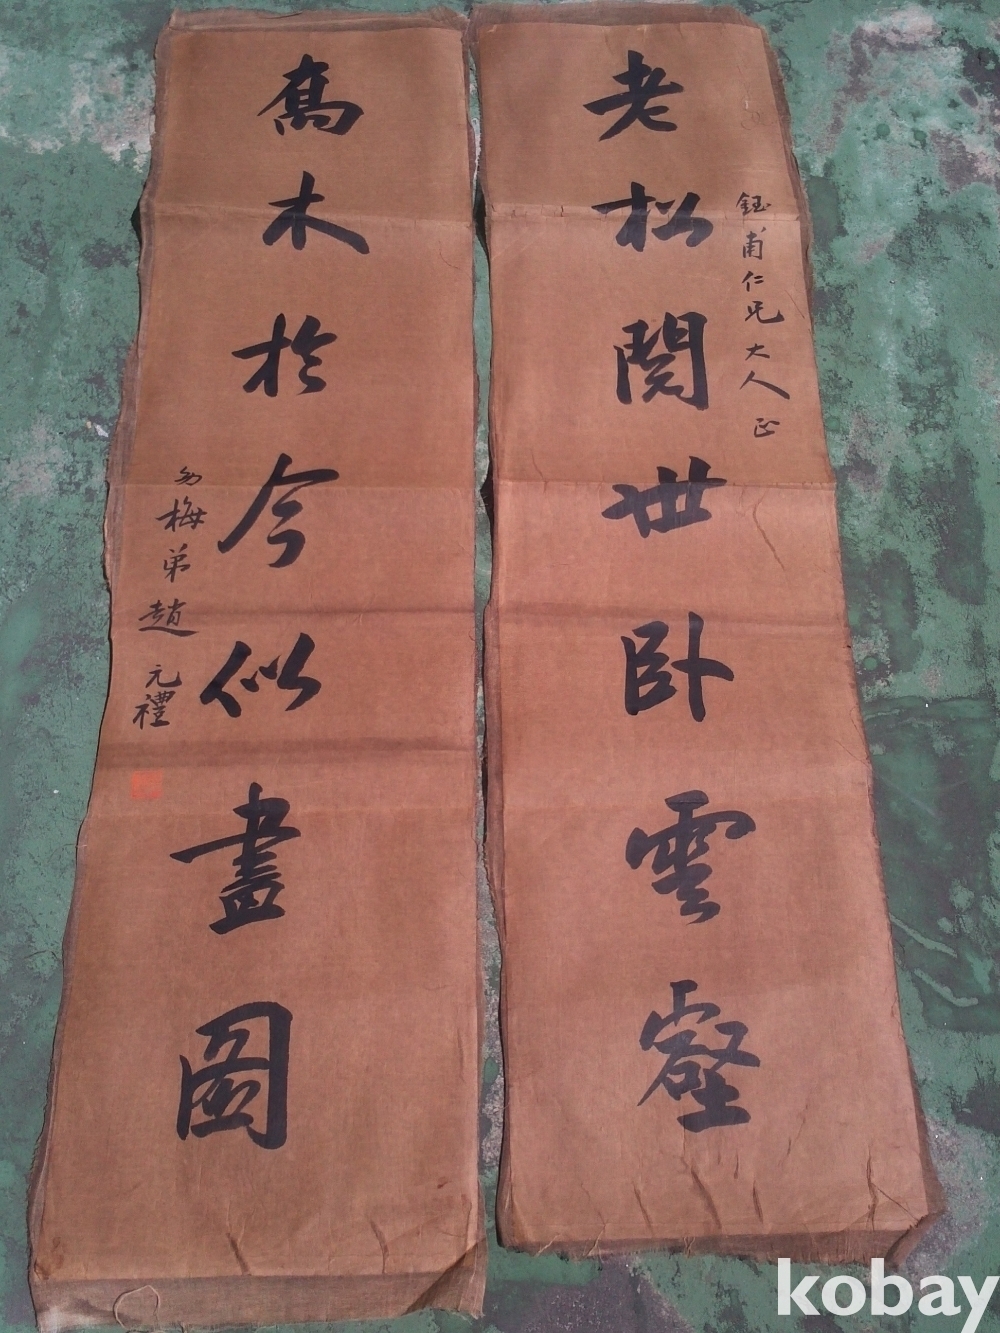 老松閱世臥雲壑
鈺甫仁兄大人正
喬木於今似畫圖
幼梅弟趙元禮
kobay